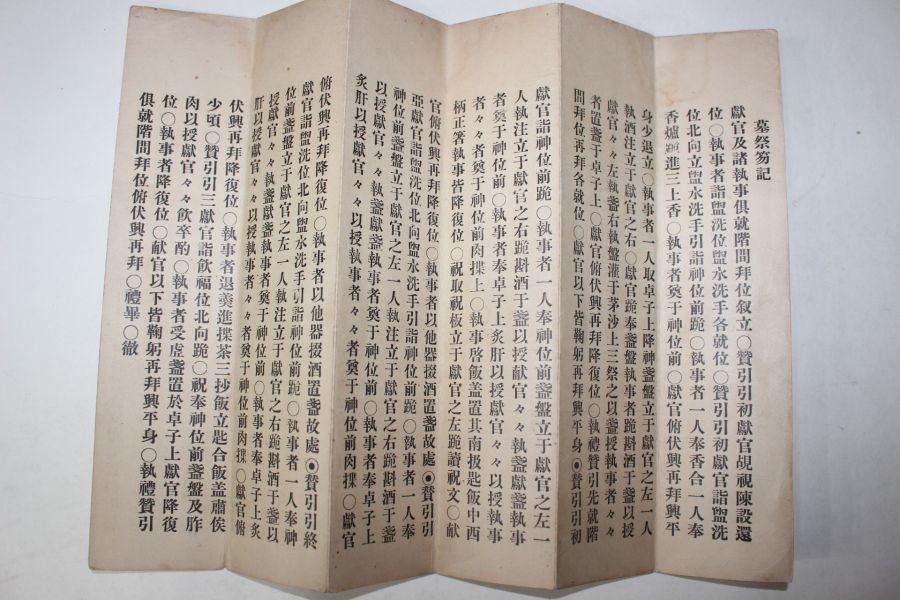 墓祭笏記
獻官及諸執事俱就階間拜位叙立○贊引引初獻官覘視陳設還
位○執事者詣盥洗位盥水洗手各就位○贊引引初獻官詣盥洗
位北向立盥水洗手引詣神位前跪○執事者一人奉香合一人奉
香爐跪進三上香○執事者奠于神位前○獻官俯伏興再拜興平
身少退立○執事者一人取卓子上降神盞盤立于獻官之左一人
執酒注立于獻官之右○獻官跪奉盞盤執事者跪斟酒于盞以授
獻官々左執盞右執盤灌于茅沙上三祭之以盞授執事者々々
者置盞于卓子上○獻官俯伏興再拜降復位○執禮贊引先就階
間拜位再拜各就位○獻官以下皆鞠躬再拜興平身◉贊引引初
獻官詣神位前跪○執事者一人奉神位前盞盤立于獻官之左一
人執注立于獻官之右跪斟酒于盞以授献官々々執盞獻盞執事
者奠于神位前○執事者奉卓子上炙肝以授獻官々々以授執事
者々々者奠于神位前肉揲○執事啓飯盖置其南扱匙飯中西
柄正箸執事皆降復位○祝取祝板立于獻官之左跪讀祝文○献
官俯伏興再拜降復位○執事者以他器掇酒置盞故處◉贊引引
亞獻官詣盥洗位北向盥水洗手引詣神位前跪○執事者一人奉
神位前盞盤立于獻官之左一人執注立于獻官之右跪斟酒于盞
以授獻官々々執盞獻盞執事者奠于神位前○執事者奉卓子上
炙肝以授獻官々々以授執事者々々者奠于神位前肉揲○獻官
俯伏興再拜降復位○執事者以他器掇酒置盞故處◉贊引引終
獻官詣盥洗位北向盥水洗手引詣神位前跪○執事者一人奉神
位前盞盤立于獻官之左一人執注立于獻官之右跪斟酒于盞以
授獻官々々執盞獻盞執事者奠于神位前○執事者奉卓子上炙
肝以授獻官々々以授執事者々々者奠于神位前肉揲○獻官俯
伏興再拜降復位○執事者退羮進揲茶三抄飯立匙合飯盖肅俟
少頃○贊引引三獻官詣飮福位北向跪○祝奉神位前盞盤及胙
肉以授獻官々々飮卒酌○執事者受虛盞置於卓子上獻官降復
位○執事者降復位○献官以下皆鞠躬再拜興平身○執禮贊引
俱就階間拜位俯伏興再拜○禮畢○徹